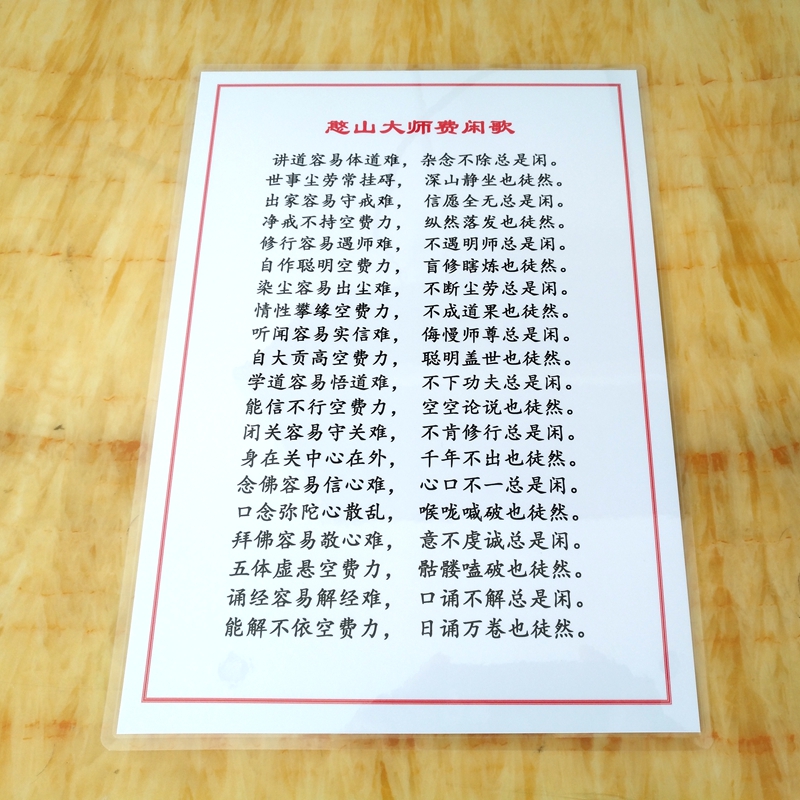 憨山大师费闲歌
讲道容易体道难，杂念不除总是闲。
世事尘劳常挂碍，深山静坐也徒然。
出家容易守戒难，信愿全无总是闲。
净戒不持空费力，纵然落发也徒然。
修行容易遇师难，不遇明师总是闲。
自作聪明空费力，盲修瞎炼也徒然。
染尘容易出尘难，不断尘劳总是闲。
情性攀缘空费力，不成道果也徒然。
听闻容易实信难，侮慢师尊总是闲。
自大贡高空费力，聪明盖世也徒然。
学道容易悟道难，不下功夫总是闲。
能信不行空费力，空空论说也徒然。
闭关容易守关难，不肯修行总是闲。
身在关中心在外，千年不出也徒然。
念佛容易信心难，心口不一总是闲。
口念弥陀心散乱，喉咙喊破也徒然。
拜佛容易敬心难，意不虔诚总是闲。
五体虚悬空费力，骷髅嗑破也徒然。
诵经容易解经难，口诵不解总是闲。
能解不依空费力，日诵万卷也徒然。